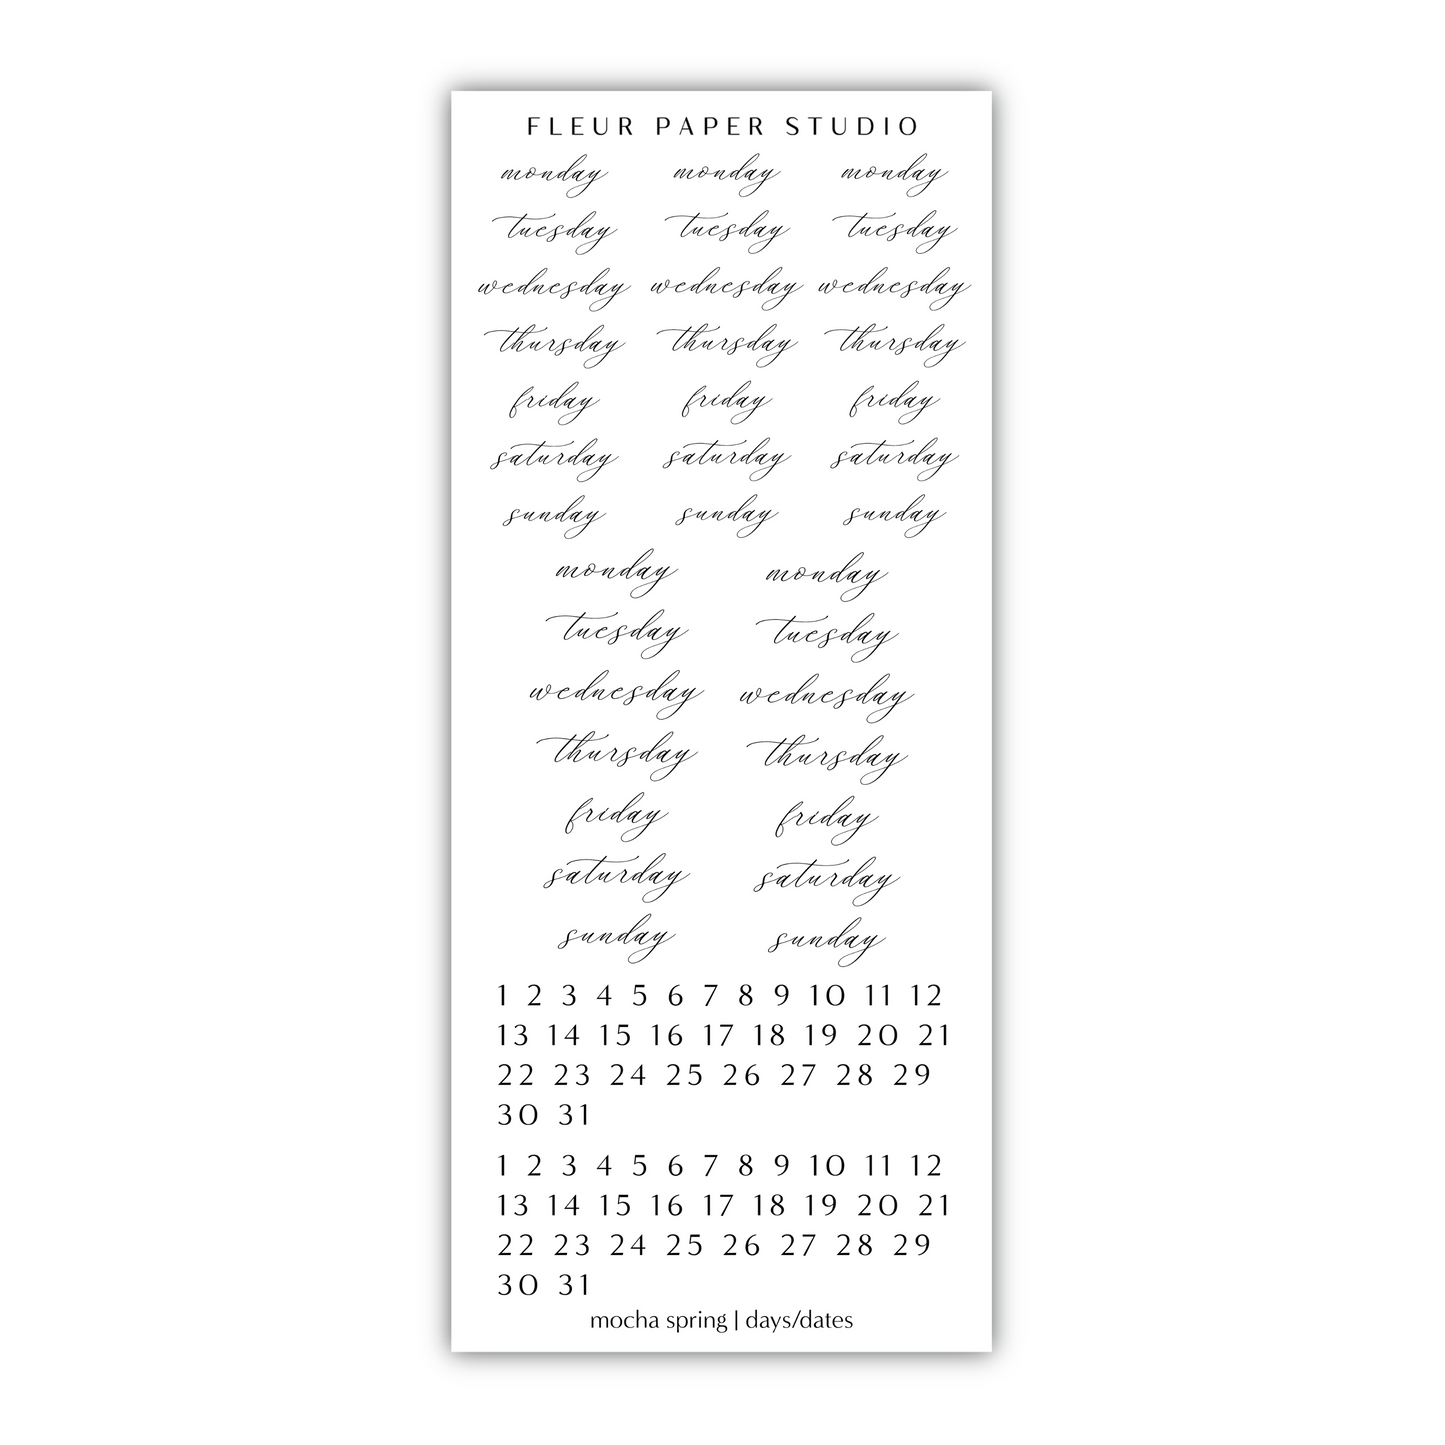 FLEUR PAPER STUDIO
monday monday monday
tuesday tuesday tuesday
wednesday wednesday wednesday
thursday thursday thursday
friday friday friday
saturday saturday saturday
sunday sunday sunday
monday monday
tuesday tuesday
wednesday wednesday
thursday thursday
friday friday
saturday saturday
sunday sunday
1 2 3 4 5 6 7 8 9 10 11 12
13 14 15 16 17 18 19 20 21
22 23 24 25 26 27 28 29
30 31
1 2 3 4 5 6 7 8 9 10 11 12
13 14 15 16 17 18 19 20 21
22 23 24 25 26 27 28 29
30 31
mocha spring | days/dates